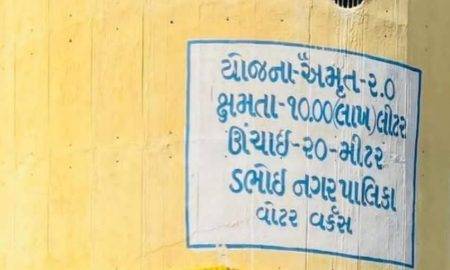 યોજના-અમૃત-૨.૦
ક્ષમતા-૧૦.૦૦(લાખ)લીટર
ઊંચાઇ-૨૦-મીટર
ડભોઇ નગરપાલિકા
વોટર વર્કસ